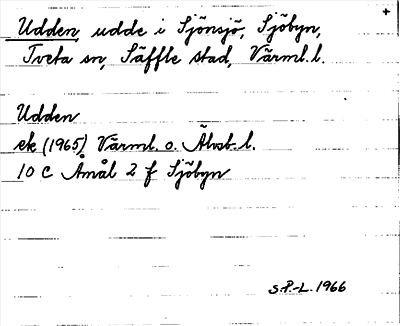 +
Udden, udde i Sjönsjö, Sjöbyn,
Tveta sn, Säffle stad, Värml. l.
Udden
ek (1965) Värml. o. Älvsb. l.
10 C Åmål 2 f Sjöbyn
S.P.-L. 1966